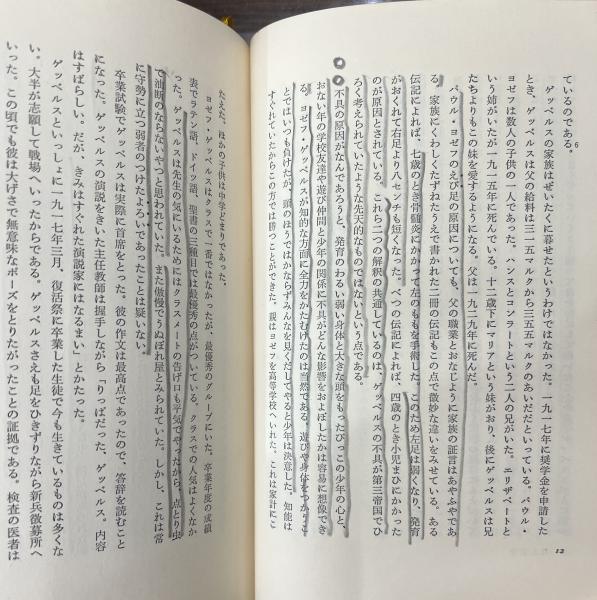 ているのである。
6
ゲッベルスの家族はぜいたくに暮せたというわけではなかった。一九一七年に奨学金を申請した
とき、ゲッベルスは父の給料は三一五マルクから三五五マルクのあいだだといっている。パウル・
ヨゼフは数人の子供の一人であった。ハンスとコンラートという二人の兄がいた。エリザベートと
いう姉がいたが一九一五年に死んでいる。十二歳下にマリアという妹がおり、後にゲッベルスは兄
たちよりもこの妹を愛するようになる。父は一九二九年に死んだ。
パウル・ヨゼフのえび足の原因についても、父の職業とおなじように家族の証言はあやふやであ
る。家族にくわしくたずねたうえで書かれた二冊の伝記もこの点で微妙な違いをみせている。ある
伝記によれば、七歳のとき骨髄炎にかかって左のももを手術した。このため左足は弱くなり、発育
がおくれて右足より八センチも短くなった。べつの伝記によれば、四歳のとき小児まひにかかった
のが原因とされている。これら二つの解釈の共通しているのは、ゲッベルスの不具が第三帝国でひ
ろく考えられていたような先天的なものではないという点である。
不具の原因がなんであろうと、発育のわるい弱い身体と大きな頭をもったびっこの少年の心と、
おない年の学校友達や遊び仲間と少年の関係に不具がどんな影響をおよぼしたかは容易に想像でき
る。ヨゼフ・ゲッベルスが知的な方面に全力をかたむけたのは当然である。遊びや身体をつかうこ
とではいつも負けたが、頭のほうではかならずみんなを見くだしてやると少年は決意した。知能は
すぐれていたからこの方では勝つことができた。親はヨゼフを高等学校へいれた。これは家計にこ
12
たえた。ほかの子供は中学どまりであった。
ヨゼフ・ゲッベルスはクラスで一番ではなかったが、最優秀のグループにいた。卒業年度の成績
表でラテン語、ドイツ語、聖書の三種目では最優秀の点がついている。クラスでの人気はよくなか
った。ゲッベルスは先生の気にいるためにはクラスメートの告げ口も平気でやったから、点とり虫
で油断のならないやつと思われていた。また傲慢でうぬぼれ屋とみられていた。しかし、これは常
に守勢に立つ弱者のつけたよろいであったことは疑いない。
卒業試験でゲッベルスは実際に首席をとった。彼の作文は最高点であったので、答辞を読むこと
になった。ゲッベルスの演説をきいた主任教師は握手しながら「りっぱだった、ゲッベルス。内容
はすばらしい。だが、きみはすぐれた演説家にはなるまい」とかたった。
ゲッベルスといっしょに一九一七年三月、復活祭に卒業した生徒で今も生きているものは多くな
い。大半が志願して戦場へいったからである。ゲッベルスさえも足をひきずりながら新兵徴募所へ
いった。この頃でも彼は大げさで無意味なポーズをとりたがったことの証拠である。検査の医者は